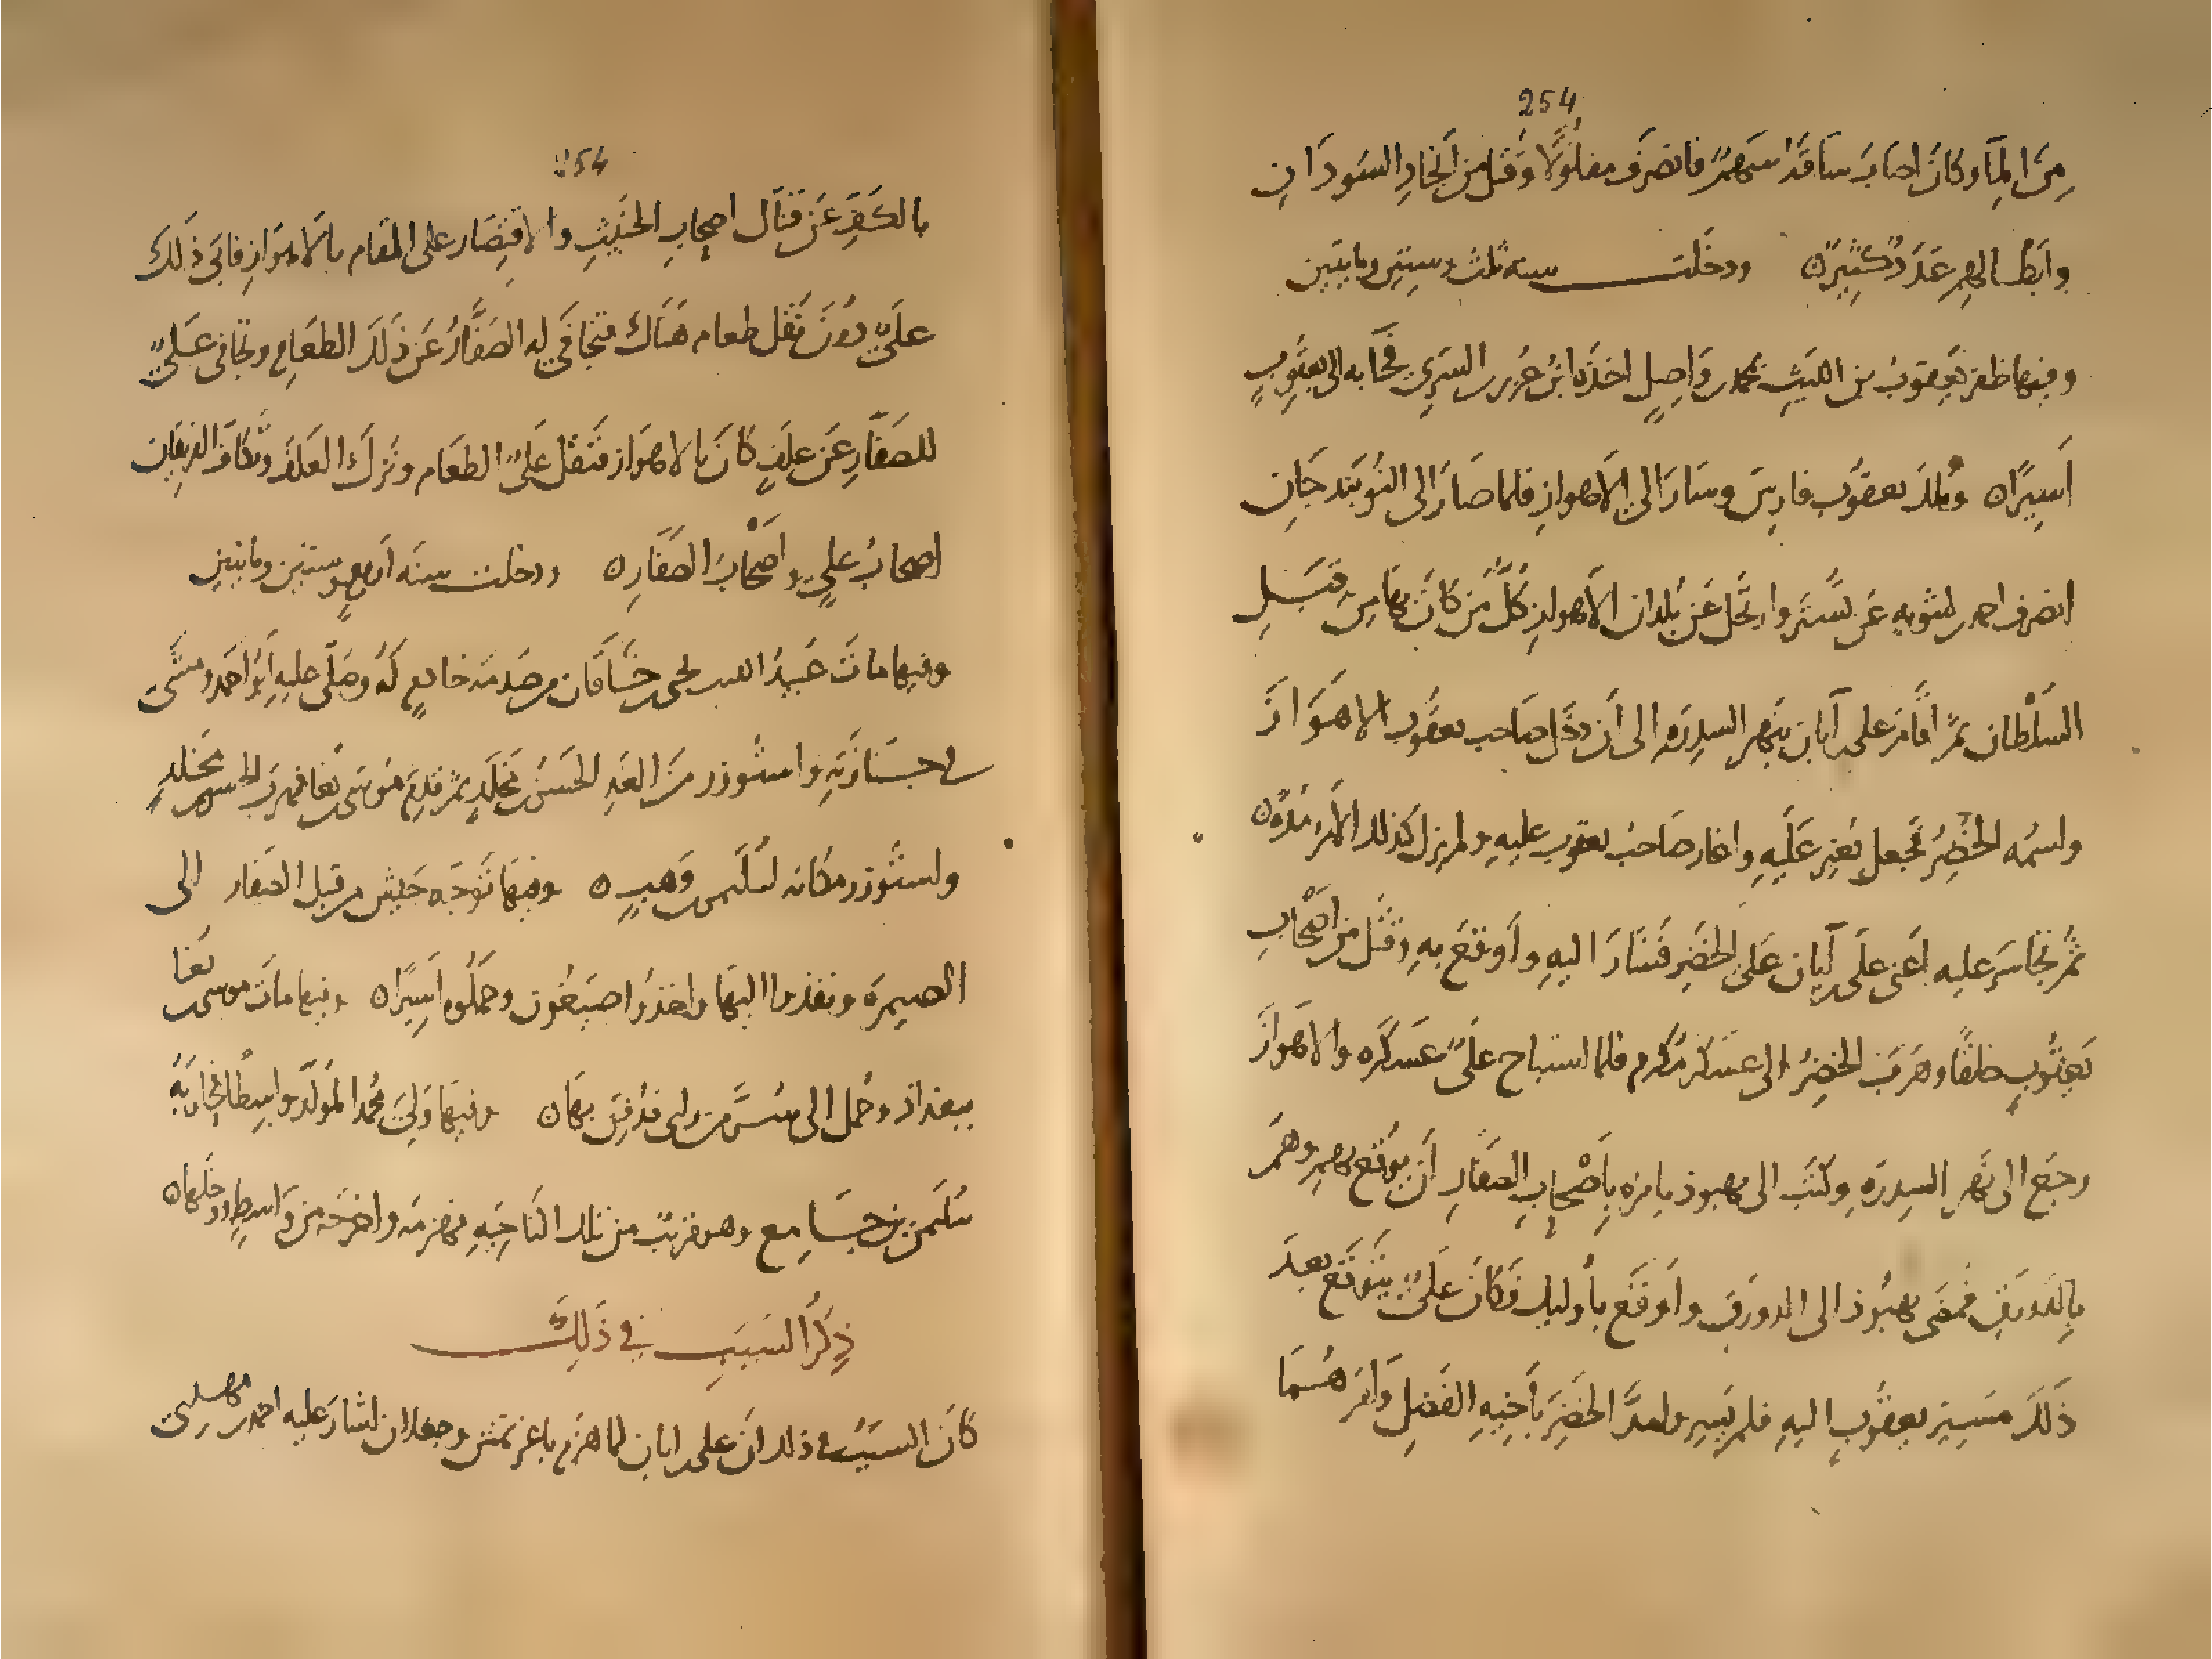 254
مِنَ المَآءِ وكانَ اصَابَ سَاقَهُ سَهمٌ فانصَرفَ مفلُولًا وَقُتلَ من انجَادِ السّودَانِ
وابطالهم عَدَدٌ كثِيرٌ ه ودخَلَت سنه ثلث وسِتين ومايتَين
وفيها ظفرَ يَعقوبُ بن الليَثِ بمحمد بن وَاصِلٍ اخذَهُ ابنُ عُزيز بن السَرِي فجَآ به الى يعقُوبٍ
اَسيرًا ه ومَلكَ يعقوُب فارِسَ وسَارَ الى الاَهوازِ فلما صَارَ الى النُوبَندجَانِ
انصَرفَ احمد بن ليثويه عَن تُسترَ وارتحَل عَن بُلدان الاَهوازِ كُلُّ مَن كانَ بهَا مِن قِبَلِ
السَلْطان ثمّ اقَامَ على بن اَبان بنَهرِ السِدرَه الى اَن دخَل صَاحب يعقُوب الاهوَازَ
واسمُه الخَضِرُ فجَعل يُغير عَلَيهِ واغار صَاحبُ يعقوب عليهِ ولم يزل كذلك الاَمرُ مُدّةً ه
ثمُ تجَاسَر عليه اَعنى على بن اَبان عَلىَ الخضِر فَسَارَ اليهِ واَوقعَ بهِ وقَتَل من اصْحَابِ
يَعقُوبٍ خلقًا وهَربَ الخضِرُ الى عَسكر مُكرم فلما استباح عَلىٌّ عسَكرَه والاهَوازَ
رجَعَ الى نَهرِ السِدرَهِ وكتَبَ الى بهبوذ يامُره بِاَصْحابِ الصفّارِ اَن يُوقع بهم وهُمْ
بِالدَورَقِ فمضَى بهبُوذ الى الدورق واَوقعَ باُوليك فكانَ عَلىٌّ يتوَقع بَعدَ
ذَلكَ مَسِيرَ يعقُوبٍ اليهِ فلم يَسِر وامدَّ الخَضِرَ بأخِيهِ الفَضلِ وَاَمرَهُمَا
254
بالكَفّ عَن قتَال اصحَابِ الخَبِيثِ والاقتِصَار على المقَام بالاَهوَازِ فابَى ذَلكَ
عَليٌّ دُونَ نَقل طعام هَنَاكَ فتجافَى له الصَفّارُ عَن ذَلكَ الطَعامِ وتجَافى عَليٌّ
للصَفّارِ عَن علَفٍ كانَ بالاهوَاز فنَقلَ عَلىٌّ الطعَام وترَكَ العَلَفَ وتكافّ الفريقَان
اصحَابُ عليٍّ واَصْحَابُ الصَفّارِ ه ودخلت سنَه اَربعٍ وستين ومايتين
وفيها ماتَ عُبيدُ الله بن يحيى بن خَاقَان من صَدمَه خادِمٍ لَهُ وصَلّى عليهِ اَبو اَحمد ومشَى
فى جَنَازَتِهِ واستُوزر مِنَ الغَدِ الحَسَنُ بن مخَلَدٍ ثمّ قدِمَ مُوسَى بن بُغا فهَربَ الحسن بن مخَلدٍ
واستُوزر مكانَه سُلَيمن بن وَهبٍ ه وفيهَا توَجّه جَيش من قبل الصفّار الى
الصيمرَه ونفذوا اليهَا واخذُوا صَيغُون وحمَلُوه اَسيرًا ه وفيها ماتَ موسى بن بُغا
ببغداذ وحُمل الى سُرَّ من راى فدُفِنَ بهَا ه وفيهَا وَلىَ محُمد المُولّد واسِطًا فحَارَبَهُ
سُلَيمَن بن جَامِع وهو قريبٌ من تلك النَاحِيَهِ فهزمَه واخرَجَه من وَاسِط ودخَلها ه
ذِكرُ السَبَبِ في ذَلِكَ
كانَ السبَبُ فى ذلك اَنّ على بن ابان لما هَزمَ باغرتمش وجعلان اشَار عَليه احمد بن مهدى